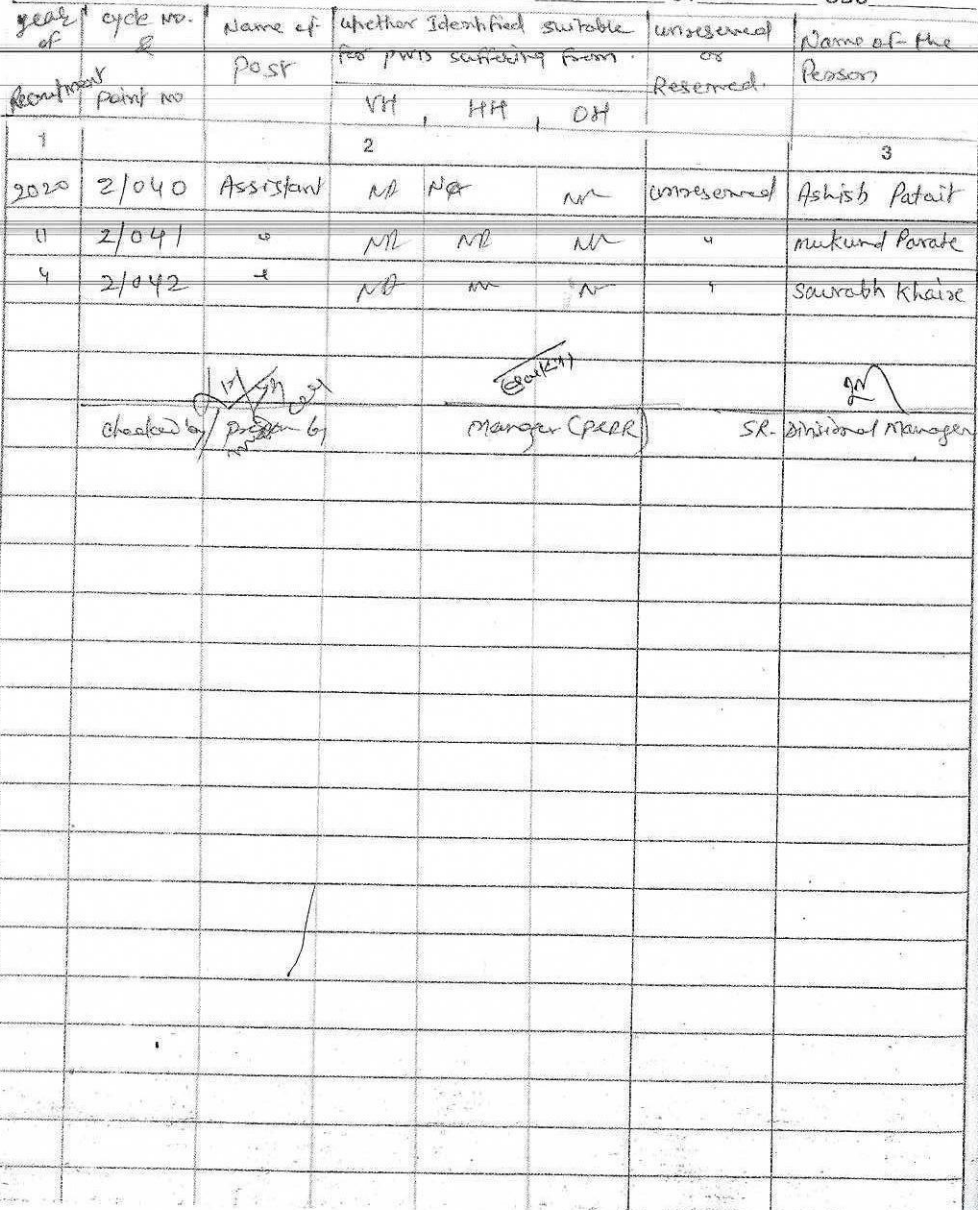 year of Recruitment | cycle No. & Point No | Name of Post | whether Identified suitable for pwD suffering from. VH, HH, OH | unreserved or Reserved. | Name of the Person
1 2 3
2020 2/040 Assistant NA unreserved Ashish Patait
11 2/041 " NA NA NA " mukund Parate
" 2/042 " NA " Saurabh Khaire
checked by/ Manager (P&IR) SR. Divisional Manager